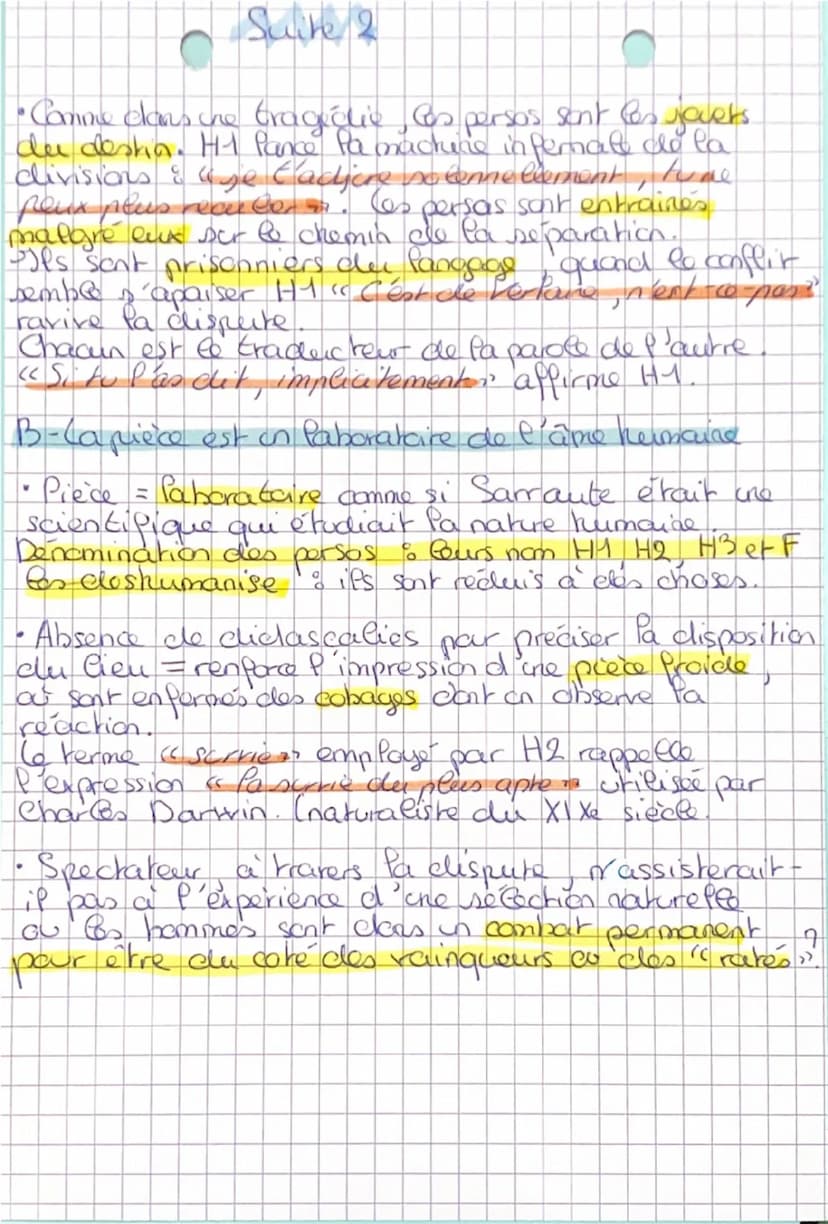 Suite 2
• Comme dans une tragédie, les persos sont les jouets
du destin. H1 lance la machine infernale de la
divisions : « je t'adjure solennellement, tu ne
peux plus reculer ». Les persos sont entrainés
malgré eux sur le chemin de la séparation.
Ils sont prisonniers du langage, quand le conflit
semble s'apaiser H1 « C'est de Verlaine, n'est-ce-pas »
ravive la dispute.
Chacun est le traducteur de la parole de l'autre.
« Si tu l'as dit, implicitement » affirme H1.
B-La pièce est un laboratoire de l'âme humaine
• Pièce = laboratoire comme si Sarraute était une
scientifique qui étudiait la nature humaine.
Dénomination des persos : leurs nom H1, H2, H3 et F
les deshumanise : ils sont réduis à des choses.
• Absence de didascalies pour préciser la disposition
du lieu = renforce l'impression d'une pièce froide,
où sont enfermés des cobayes dont on observe la
réaction.
Le terme « survie » employé par H2 rappelle
l'expression « la survie du plus apte » utilisée par
Charles Darwin. (naturaliste du XIXe siècle.
• Spectateur, à travers la dispute, n'assisterait-
il pas à l'expérience d'une sélection naturelle
où les hommes sont dans un combat permanent
pour être du coté des vainqueurs ou des « ratés » ?